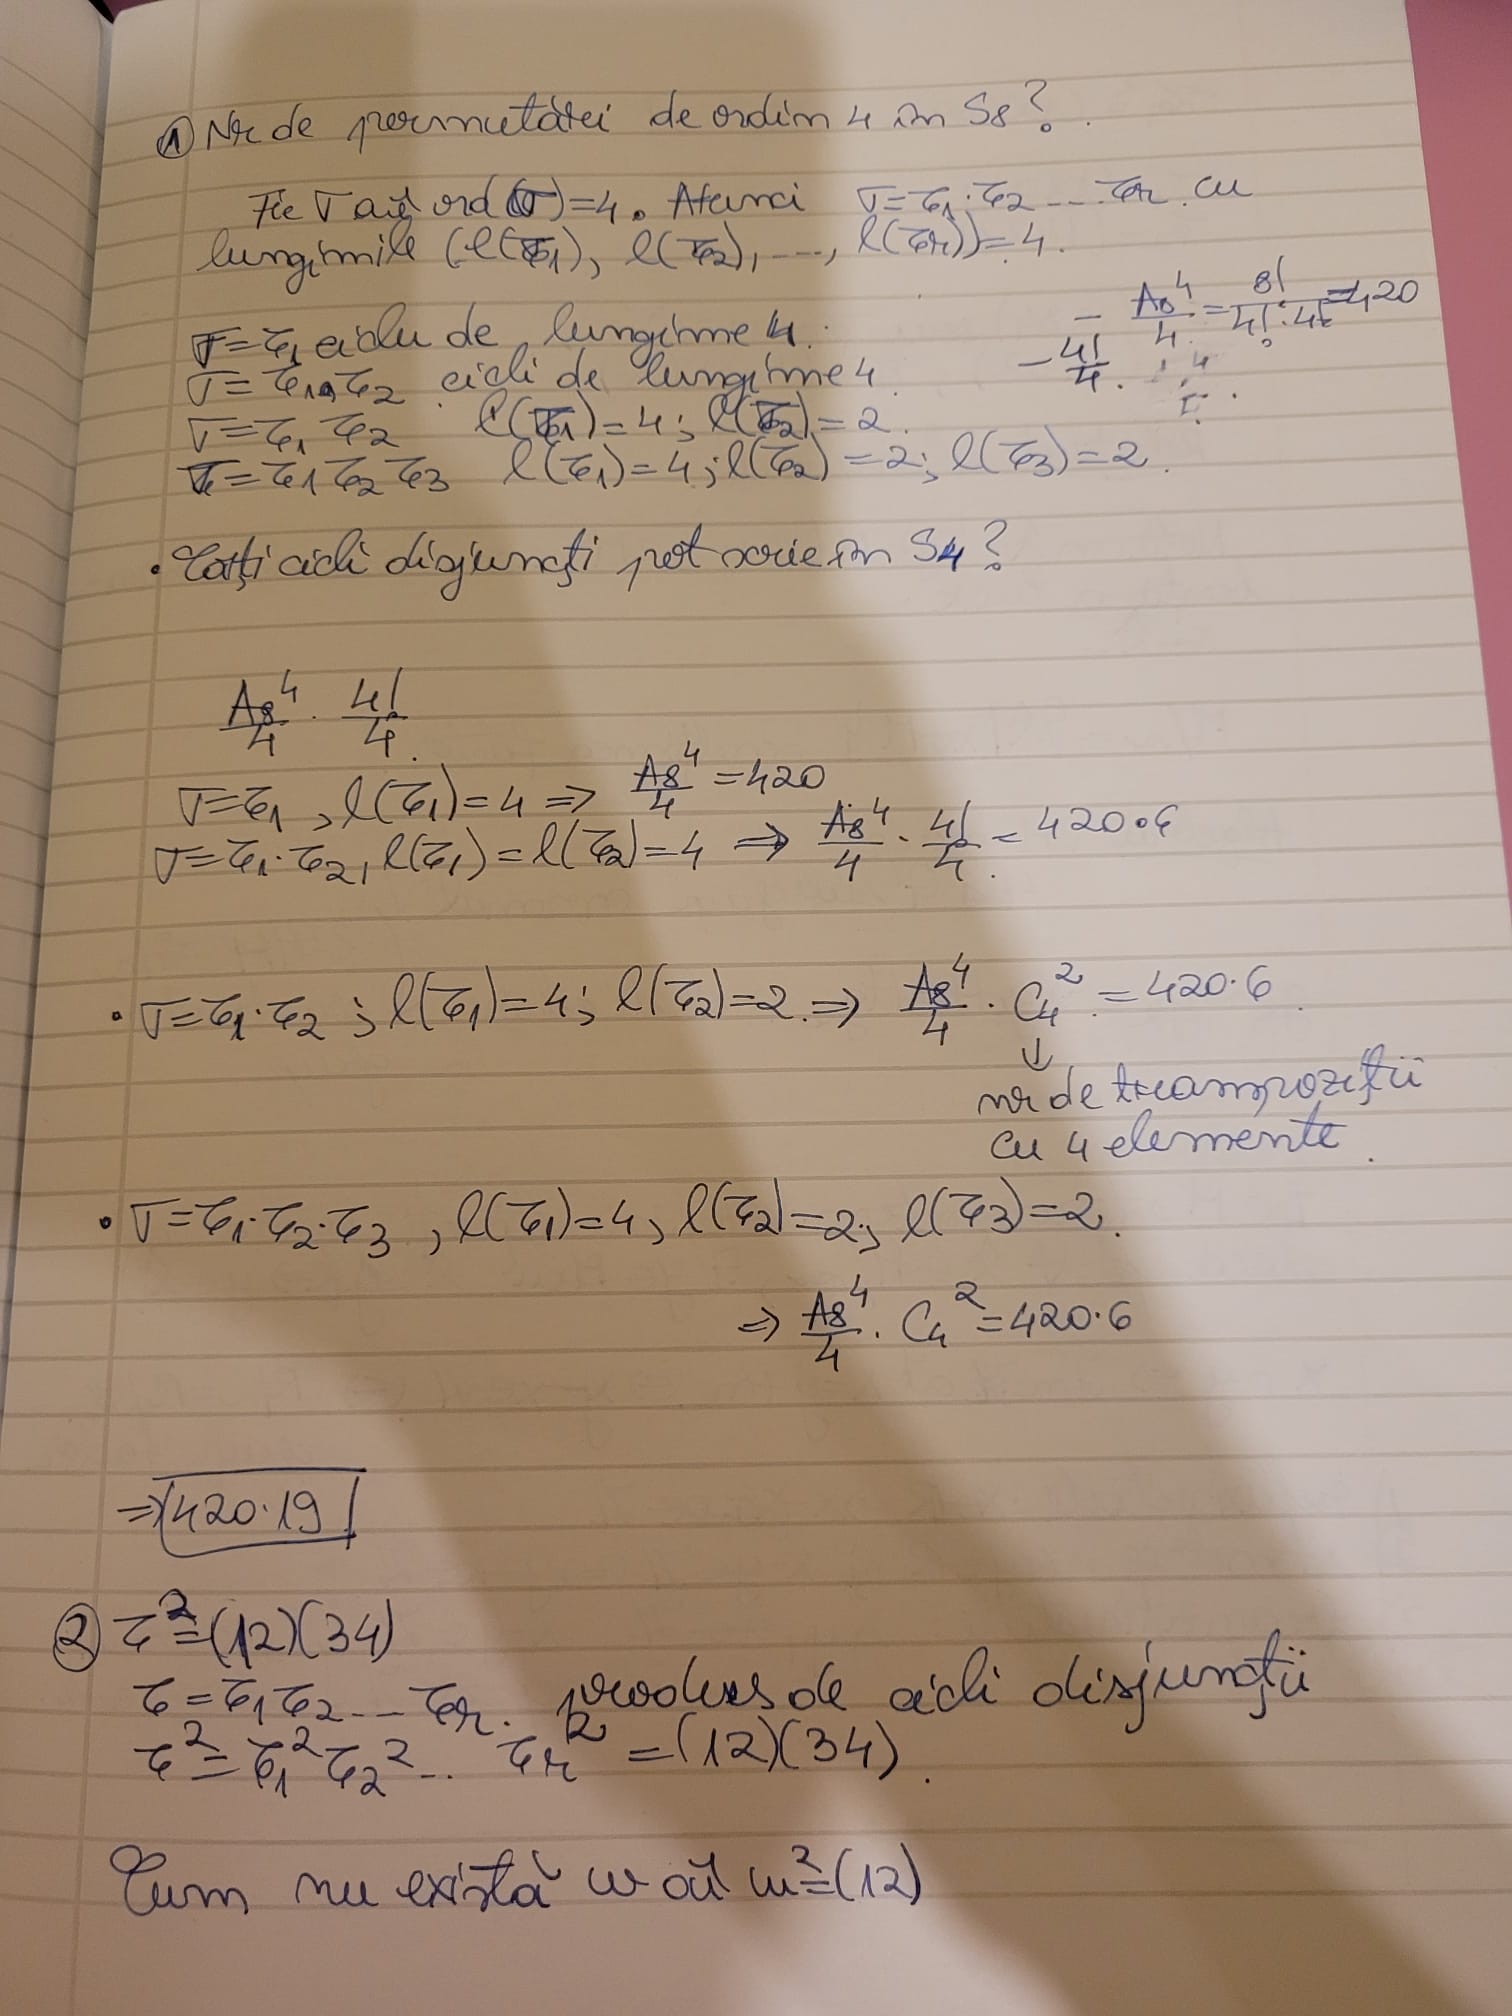 ① Nr de permutări de ordin 4 în S8?
Fie σ aî ord(σ)=4. Atunci σ=τ1·τ2...τr cu
lungimile (l(τ1), l(τ2), ..., l(τr))=4.
σ=τ1 ciclu de lungime 4.
- A8^4/4 = 8!/(4!·4) = 420
σ=τ1·τ2 cicli de lungime 4
- 4!/4.
σ=τ1 τ2 l(τ1)=4; l(τ2)=2.
σ=τ1 τ2 τ3 l(τ1)=4; l(τ2)=2; l(τ3)=2.
• Câți cicli disjuncți pot scrie în S4?
A8^4/4 · 4!/4.
σ=τ1, l(τ1)=4 => A8^4/4 = 420
σ=τ1·τ2, l(τ1)=l(τ2)=4 => A8^4/4 · 4!/4 = 420·6
• σ=τ1·τ2; l(τ1)=4; l(τ2)=2. => A8^4/4 · C4^2 = 420·6
↓
nr de transpoziții
cu 4 elemente.
• σ=τ1·τ2·τ3, l(τ1)=4, l(τ2)=2; l(τ3)=2.
=> A8^4/4 · C4^2 = 420·6
=> 420·19
② τ^2=(12)(34)
τ=τ1τ2...τr. produs de cicli disjuncții
τ^2=τ1^2 τ2^2... τr^2 =(12)(34).
Cum nu există w aî w^2=(12)